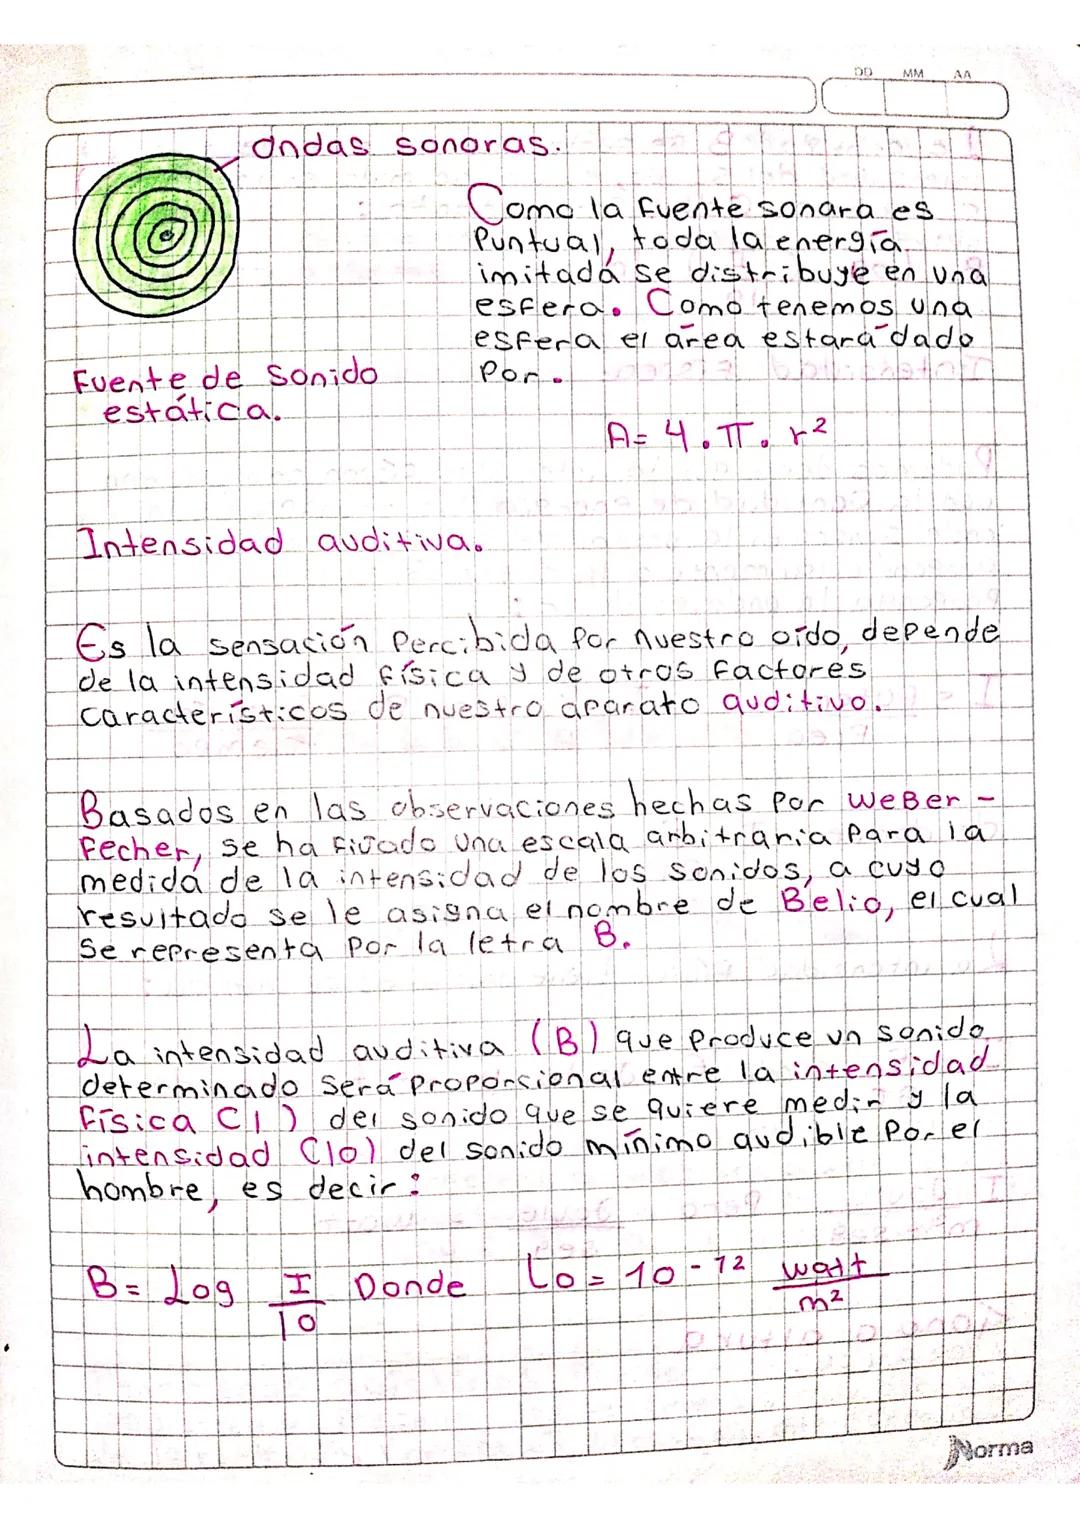 DD MM AA
Ondas sonoras.
Como la fuente sonara es
Puntual, toda la energía
imitada se distribuye en una
esfera. Como tenemos una
esfera el área estará dado
Por.
Fuente de Sonido
estática.
A= 4.π.r²
Intensidad auditiva.
Es la sensación Percibida por nuestro oído, depende
de la intensidad física y de otros factores
característicos de nuestro aparato auditivo.
Basados en las observaciones hechas por WeBer -
Fecher, se ha fijado una escala arbitraria para la
medida de la intensidad de los sonidos, a cuyo
resultado se le asigna el nombre de Belio, el cual
Se representa por la letra B.
La intensidad auditiva (B) que Produce un sonido
determinado Será Proporsional entre la intensidad
física C1) del sonido que se quiere medir y la
intensidad C10) del sonido mínimo audible Por el
hombre, es decir:
B= Log I/10 Donde Lo = 10-12 watt/m²
Norma